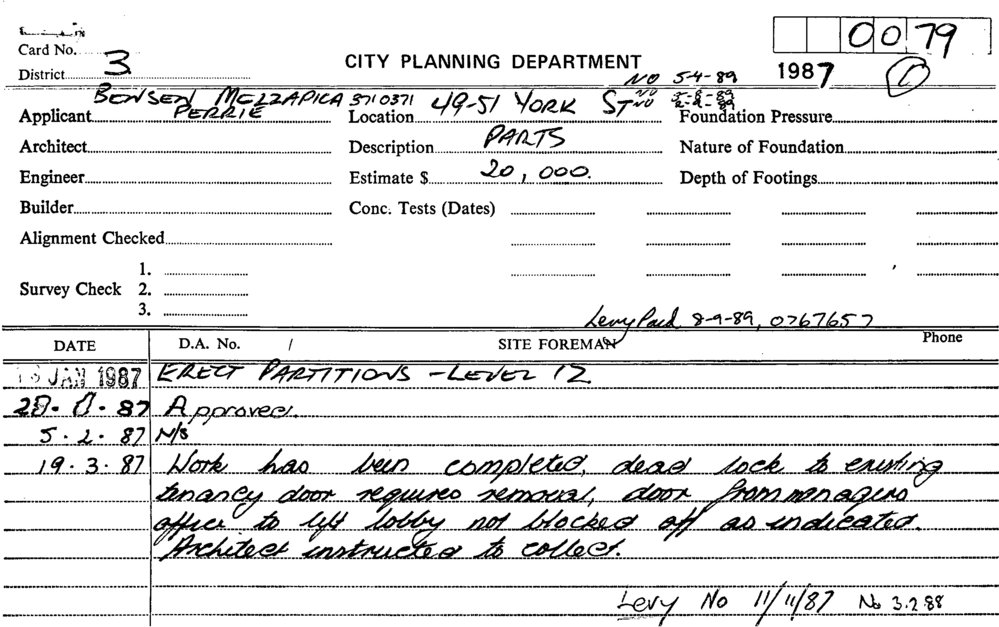 0079
Card No.
District 3
CITY PLANNING DEPARTMENT
NO 5-4-89
1987
BENSEN MEZZAPICA 3710371
Applicant PERRIE
Location 49-51 YORK ST
Foundation Pressure
Architect
Description PARTS
Nature of Foundation
Engineer
Estimate $ 20,000.
Depth of Footings
Builder
Conc. Tests (Dates)
Alignment Checked
Survey Check
1.
2.
3.
Levy Paid 8-9-89, 0767657
DATE
D.A. No. /
SITE FOREMAN
Phone
JAN 1987 ERECT PARTITIONS - LEVEL 12
87 Approved.
5.2.87 N/S
19.3.87 Work has been completed, dead lock to existing
tenancy door requires removal, door from managers
office to lift lobby not blocked off as indicated.
Architect instructed to collect.
Levy No 11/11/87 No 3.2.88